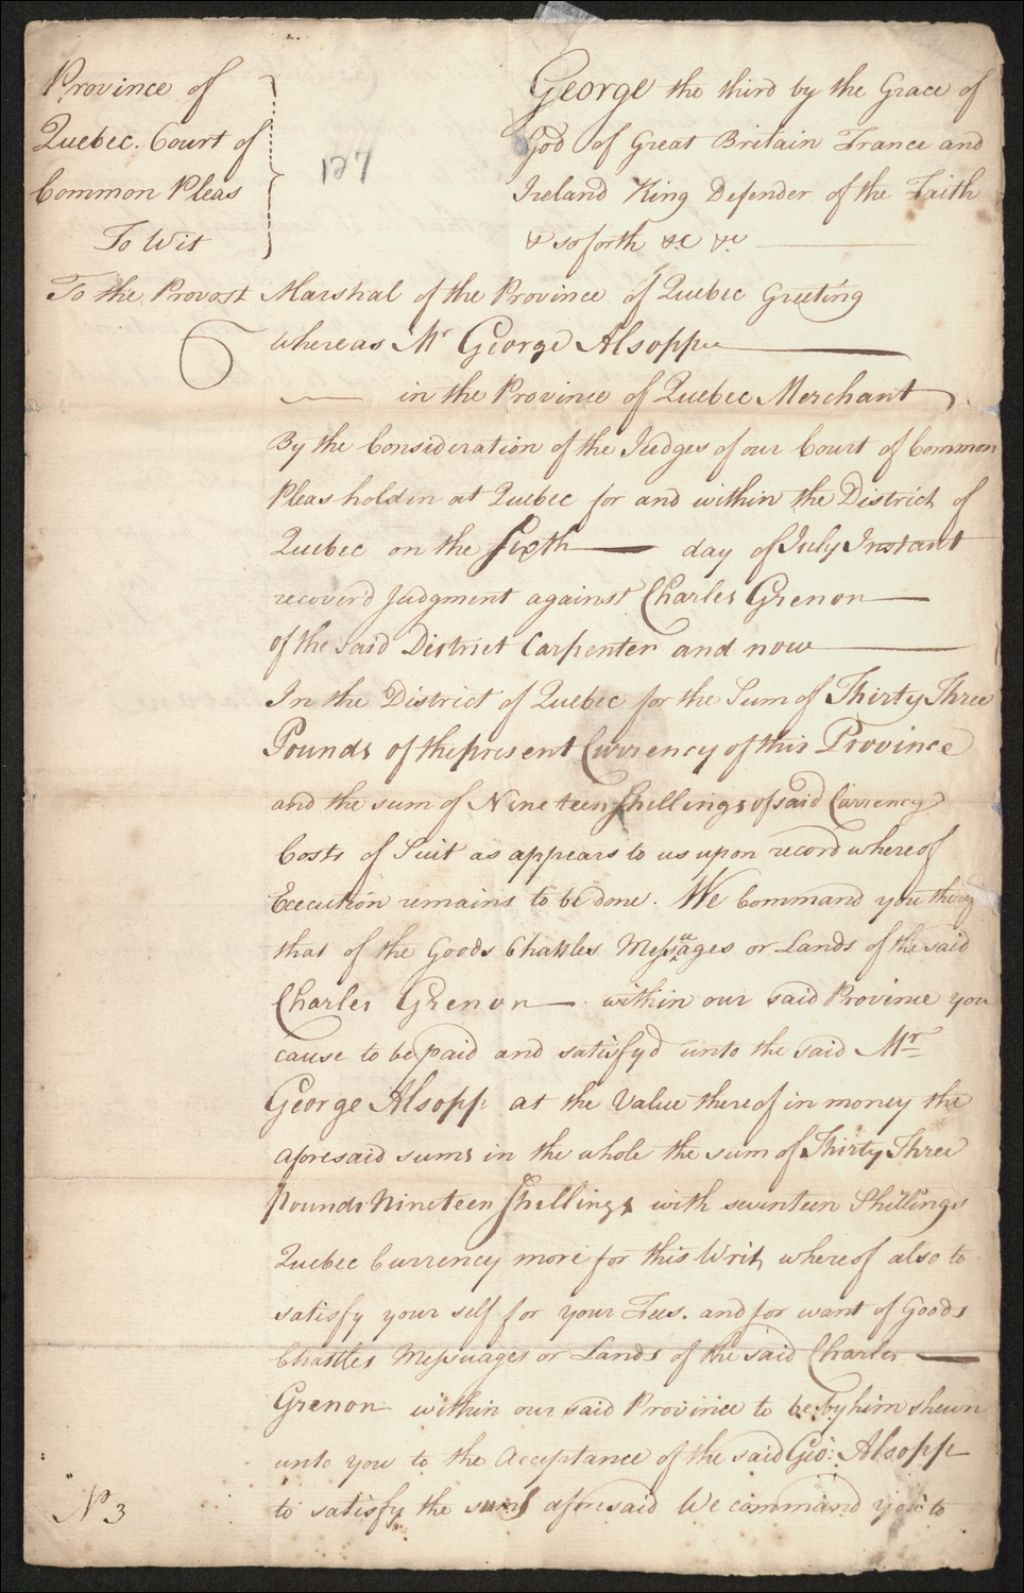 Province of
Quebec. Court of
Common Pleas
To Wit
127
George the third by the Grace of
God of Great Britain France and
Ireland King Defender of the Faith
& soforth &c &c
To the Provost Marshal of the Province of Quebec Greeting
Whereas Mr George Alsopp
in the Province of Quebec Merchant
By the Consideration of the Judges of our Court of Common
Pleas holden at Quebec for and within the District of
Quebec on the Sixth day of July Instant
recover'd Judgment against Charles Grenon
of the said District Carpenter and now
In the District of Quebec for the Sum of Thirty Three
Pounds of the present Currency of this Province
and the sum of Nineteen Shellings of said Currency
Costs of Suit as appears to us upon record whereof
Execution remains to be done. We Command you
that of the Goods Chattles Messuages or Lands of the said
Charles Grenon within our said Province you
cause to be paid and satisfyd unto the said Mr
George Alsopp at the Value thereof in money the
aforesaid sums in the whole the sum of Thirty Three
Pounds Nineteen Shellings with seventeen Shillings
Quebec Currency more for this Writ, whereof also to
satisfy your self for your Fees. and for want of Goods
Chattles Messuages or Lands of the said Charles
Grenon within our said Province to be by him shewn
unto you to the Acceptance of the said Geo: Alsopp
to satisfy the sums aforesaid We command you to
No 3